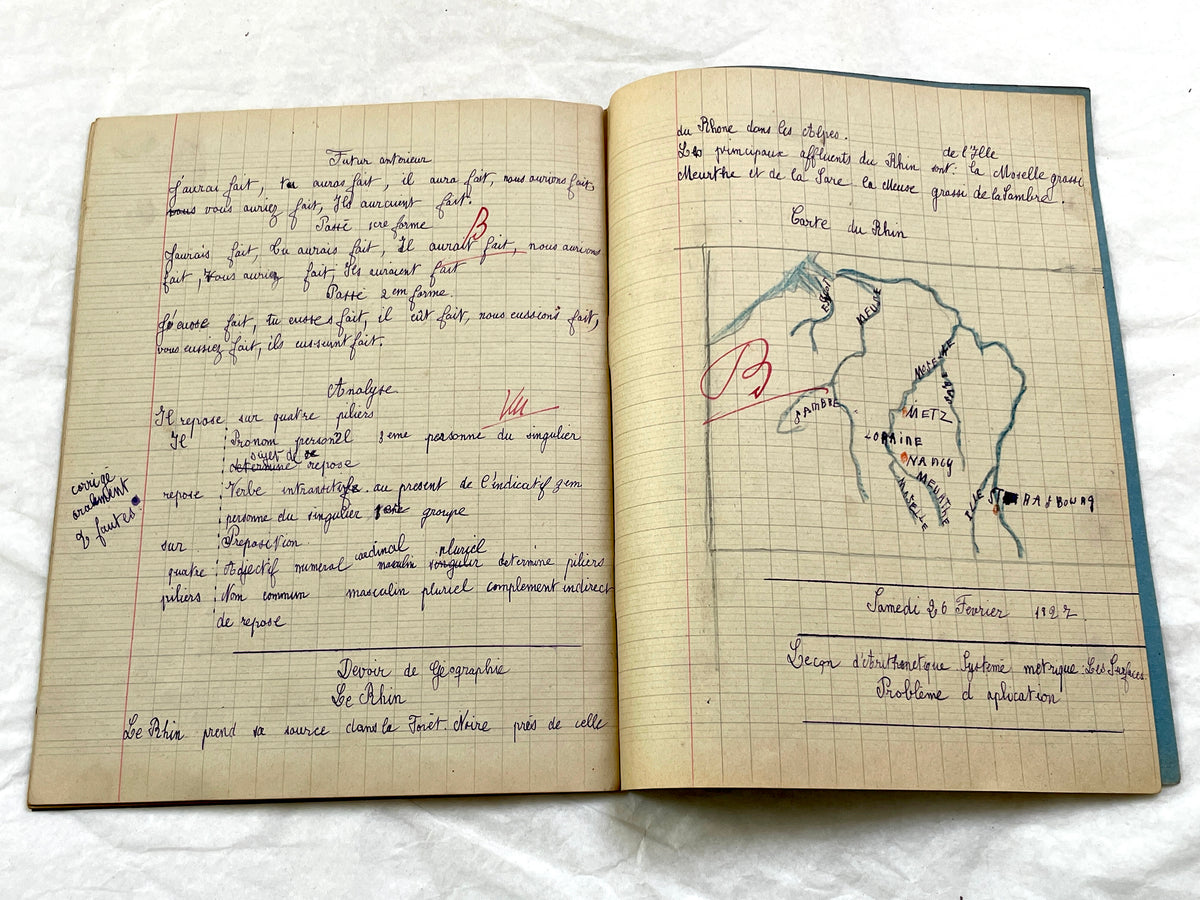 Futur antérieur
J'aurai fait, tu auras fait, il aura fait, nous aurions fait
vous vous auriez fait, Ils auraient fait.
Passé 1ere forme
B
J'aurais fait, Tu aurais fait, Il aurait fait, nous aurions
fait, Vous auriez fait, Ils auraient fait
Passé 2em forme.
J'eusse fait, tu eusses fait, il eût fait, nous eussions fait,
vous eussiez fait, ils eussent fait.
Analyse
Vu
Il repose sur quatre piliers
Il Pronom personel 3eme personne du singulier
sujet de
determine repose
repose Verbe intransitif au present de l'indicatif 3em
personne du singulier groupe
sur Preposition
cardinal pluriel
quatre Adjectif numeral masculin singulier determine piliers
piliers Nom commun masculin pluriel complement indirect
de repose
corrigé
oralement
2 fautes
Devoir de Géographie
Le Rhin
Le Rhin prend sa source dans la Forêt-Noire près de celle
du Rhone dans les Alpes.
de l'Ille
Les principaux affluents du Rhin sont: la Moselle grossi
Meurthe et de la Sare la Meuse grossi de la Sambre.
Carte du Rhin
ESCAUT
MEUSE
B
MOSELLE
SARE
SAMBRE
METZ
LORAINE
NANCY
MEURTHE
MOSELLE
ILLE
STRASBOURG
Samedi 26 Fevrier 1927.
Leçon d'Arithmetique Systéme métrique: Les Surfaces
Problème d aplication